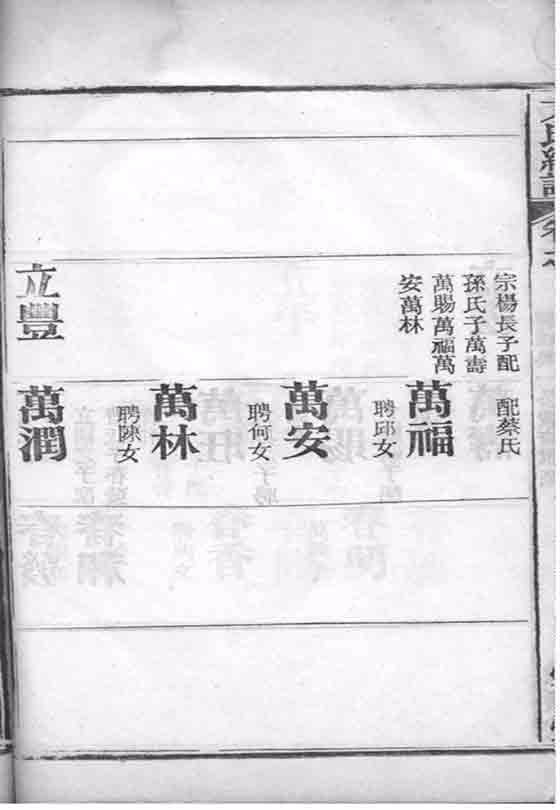 宗楊長子配
孫氏子萬壽
萬賜萬福萬
安萬林
立豐
配蔡氏
萬福
聘邱女
萬安
聘何女
萬林
聘陳女
萬潤